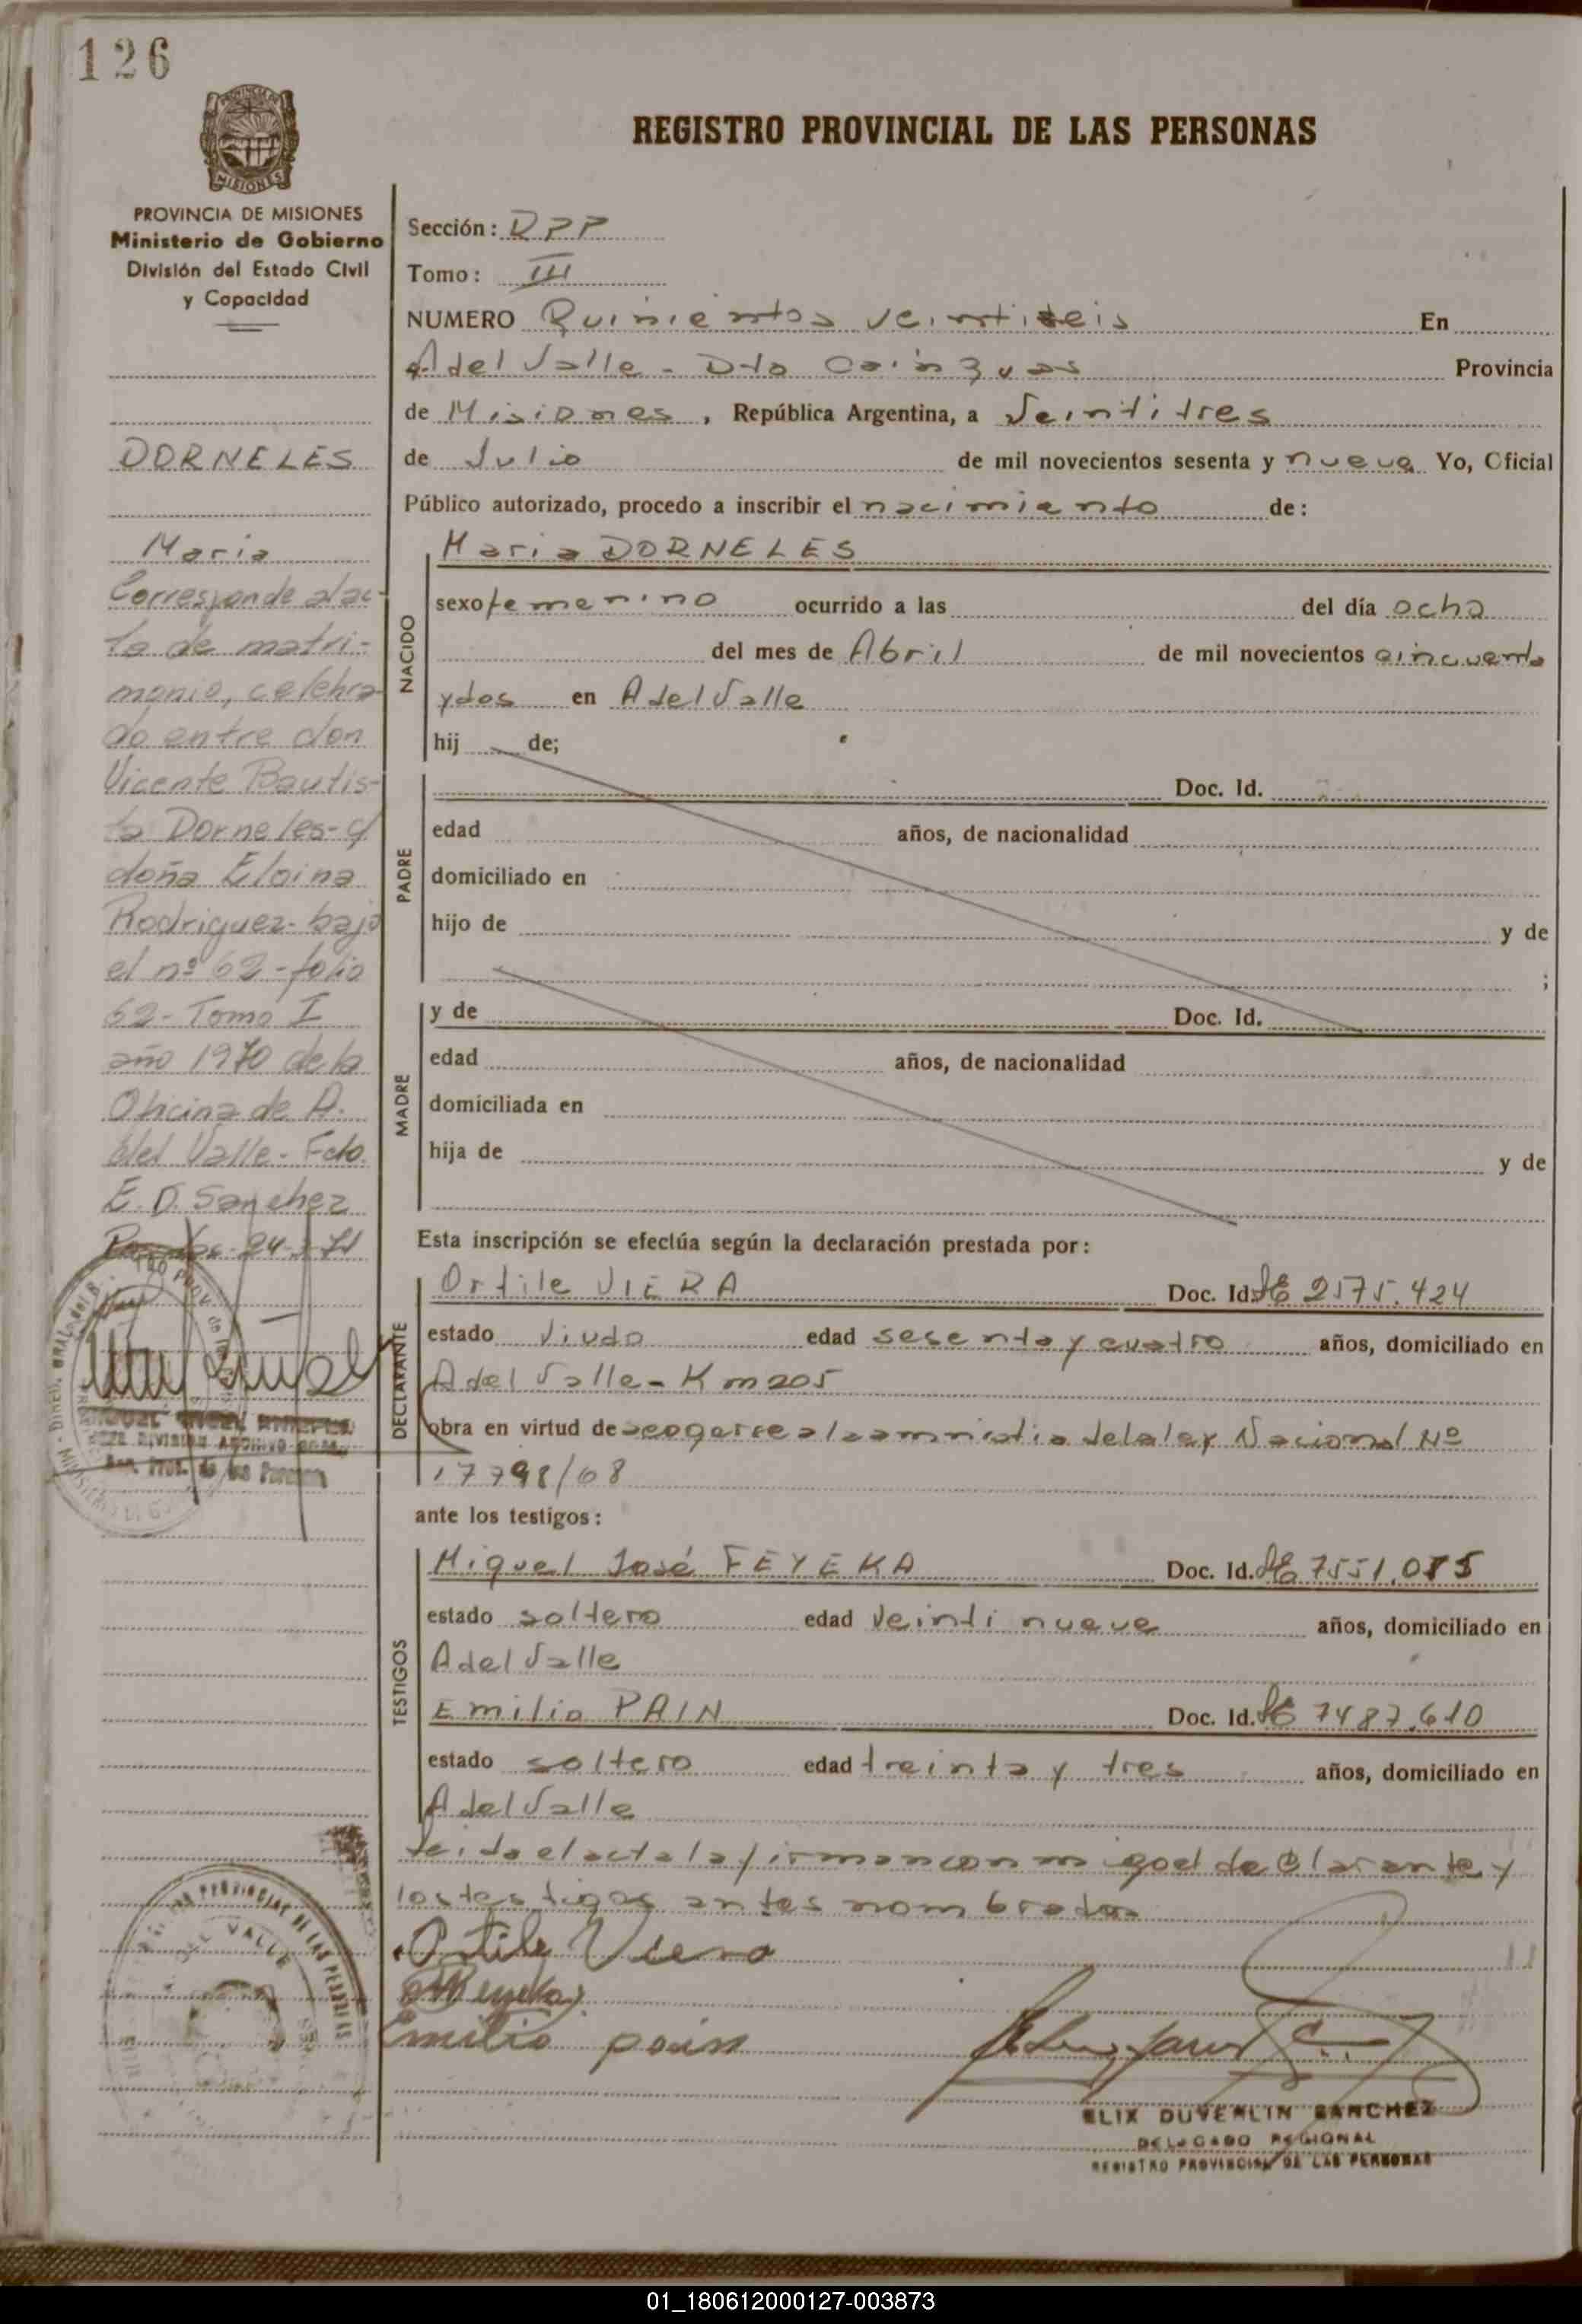 126
PROVINCIA DE MISIONES
Ministerio de Gobierno
División del Estado Civil
y Capacidad
DORNELES
Maria
Corresponde al ac-
ta de matri-
monio, celebra-
do entre don
Vicente Bautis-
ta Dorneles- y
doña Eloina
Rodriguez- bajo
el nº 62 - folio
62 - Tomo I
año 1970 de la
Oficina de A.
del Valle - Fdo.
E. D. Sanchez
REGISTRO PROVINCIAL DE LAS PERSONAS
Sección: DPP
Tomo: III
NUMERO Quinientos veintiseis En
A del Valle - Dto Cainguas Provincia
de Misiones, República Argentina, a Veintitres
de Julio de mil novecientos sesenta y nueve Yo, Oficial
Público autorizado, procedo a inscribir el nacimiento de:
NACIDO
Maria DORNELES
sexo femenino ocurrido a las del día ocho
del mes de Abril de mil novecientos cincuenta
y dos en A del Valle
hij de;
PADRE
Doc. Id.
edad años, de nacionalidad
domiciliado en
hijo de y de
;
MADRE
y de Doc. Id.
edad años, de nacionalidad
domiciliada en
hija de y de
Esta inscripción se efectúa según la declaración prestada por:
DECLARANTE
Ortile VIERA Doc. Id. LE 2575.424
estado Viudo edad sesenta y cuatro años, domiciliado en
A del Valle - Km 205
obra en virtud de acogerse a la amnistia de la ley Nacional Nº
17798/68
ante los testigos:
TESTIGOS
Miguel José FEYEKA Doc. Id. LE 7551.085
estado soltero edad Veinti nueve años, domiciliado en
A del Valle
Emilio PAIN Doc. Id. LE 7487.610
estado soltero edad treinta y tres años, domiciliado en
A del Valle
Leida el acta la firman conmigo el declarante y
los testigos antes nombrados
Ortile Viera
Emilio pain
ELIX DUVERLIN SANCHEZ
DELEGADO REGIONAL
REGISTRO PROVINCIAL DE LAS PERSONAS
01_180612000127-003873